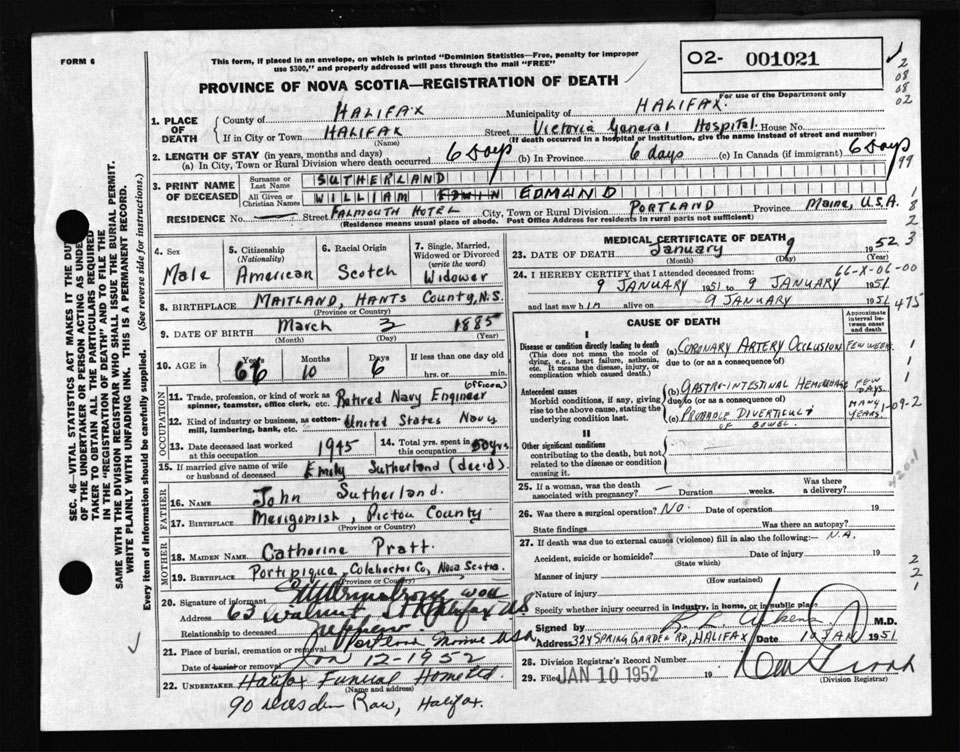 FORM 6
This form, if placed in an envelope, on which is printed "Dominion Statistics—Free, penalty for improper
use $300," and properly addressed will pass through the mail "FREE"
PROVINCE OF NOVA SCOTIA—REGISTRATION OF DEATH
02- 001021
For use of the Department only
2
08
08
02
99
1
8
2
3
475
1
1
1-09-2
2
2
1
SEC. 46—VITAL STATISTICS ACT MAKES IT THE DUTY
OF THE UNDERTAKER OR PERSON ACTING AS UNDER-
TAKER TO OBTAIN ALL THE PARTICULARS REQUIRED
IN THE "REGISTRATION OF DEATH" AND TO FILE THE
SAME WITH THE DIVISION REGISTRAR WHO SHALL ISSUE THE BURIAL PERMIT.
WRITE PLAINLY WITH UNFADING INK. THIS IS A PERMANENT RECORD.
Every item of information should be carefully supplied. (See reverse side for instructions.)
1. PLACE OF DEATH
County of HALIFAX Municipality of HALIFAX.
If in City or Town HALIFAX Street Victoria General Hospital. House No.
(Name) (If death occurred in a hospital or institution, give the name instead of street and number)
2. LENGTH OF STAY (in years, months and days)
(a) In City, Town or Rural Division where death occurred 6 Days (b) In Province 6 days (c) In Canada (if immigrant) 6 Days
3. PRINT NAME OF DECEASED
Surname or Last Name SUTHERLAND
All Given or Christian Names WILLIAM EDWIN EDMUND
RESIDENCE No. — Street FALMOUTH HOTEL City, Town or Rural Division PORTLAND Province MAINE, U.S.A.
(Residence means usual place of abode. Post Office Address for residents in rural parts not sufficient)
4. Sex
Male
5. Citizenship (Nationality)
American
6. Racial Origin
Scotch
7. Single, Married, Widowed or Divorced (write the word)
Widower
8. BIRTHPLACE MAITLAND, HANTS County, N.S.
(Province or Country)
9. DATE OF BIRTH March 3 1885
(Month) (Day) (Year)
10. AGE in Years Months Days If less than one day old
66 10 6 hrs. or min.
OCCUPATION
11. Trade, profession, or kind of work as spinner, teamster, office clerk, etc. Retired Navy Engineer (officer)
12. Kind of industry or business, as cotton-mill, lumbering, bank, etc. United States Navy
13. Date deceased last worked at this occupation 1945 14. Total yrs. spent in this occupation 50 yrs
15. If married give name of wife or husband of deceased Emily Sutherland (dec'd).
FATHER
16. Name John Sutherland.
17. Birthplace Merigomish, Pictou County
(Province or Country)
MOTHER
18. Maiden Name Catherine Pratt.
19. Birthplace Portipique, Colchester Co, Nova Scotia.
(Province or Country)
20. Signature of informant
Address 63 Walnut St Halifax NS
Relationship to deceased nephew.
21. Place of burial, cremation or removal Portland, Maine USA
Date of burial or removal Jan 12-1952
22. UNDERTAKER Halifax Funeral Home Ltd.
(Name and address)
90 Dresden Row, Halifax.
MEDICAL CERTIFICATE OF DEATH
23. DATE OF DEATH January 9 1952
(Month) (Day)
24. I HEREBY CERTIFY that I attended deceased from: 66-X-06-00
9 JANUARY 1951 to 9 JANUARY 1951
and last saw him alive on 9 JANUARY 1951
CAUSE OF DEATH
Approximate interval between onset and death
I
Disease or condition directly leading to death
(This does not mean the mode of dying, e.g., heart failure, asthenia, etc. It means the disease, injury, or complication which caused death.)
(a) CORONARY ARTERY OCCLUSION FEW WEEKS
due to (or as a consequence of)
Antecedent causes
Morbid conditions, if any, giving rise to the above cause, stating the underlying condition last.
(b) GASTRO-INTESTINAL HEMORRHAGE FEW DAYS.
due to (or as a consequence of)
(c) PROBABLE DIVERTICULI OF BOWEL. MANY YEARS.
II
Other significant conditions
contributing to the death, but not related to the disease or condition causing it.
25. If a woman, was the death associated with pregnancy? — Duration weeks. Was there a delivery?
26. Was there a surgical operation? NO. Date of operation 19
State findings Was there an autopsy?
27. If death was due to external causes (violence) fill in also the following:— N.A.
Accident, suicide or homicide? Date of injury 19
(State which)
Manner of injury
(How sustained)
Nature of injury
Specify whether injury occurred in industry, in home, or in public place
Signed by M.D.
Address 324 SPRING GARDEN RD, HALIFAX Date 10 JAN 1951
28. Division Registrar's Record Number
29. Filed JAN 10 1952 19
(Division Registrar)